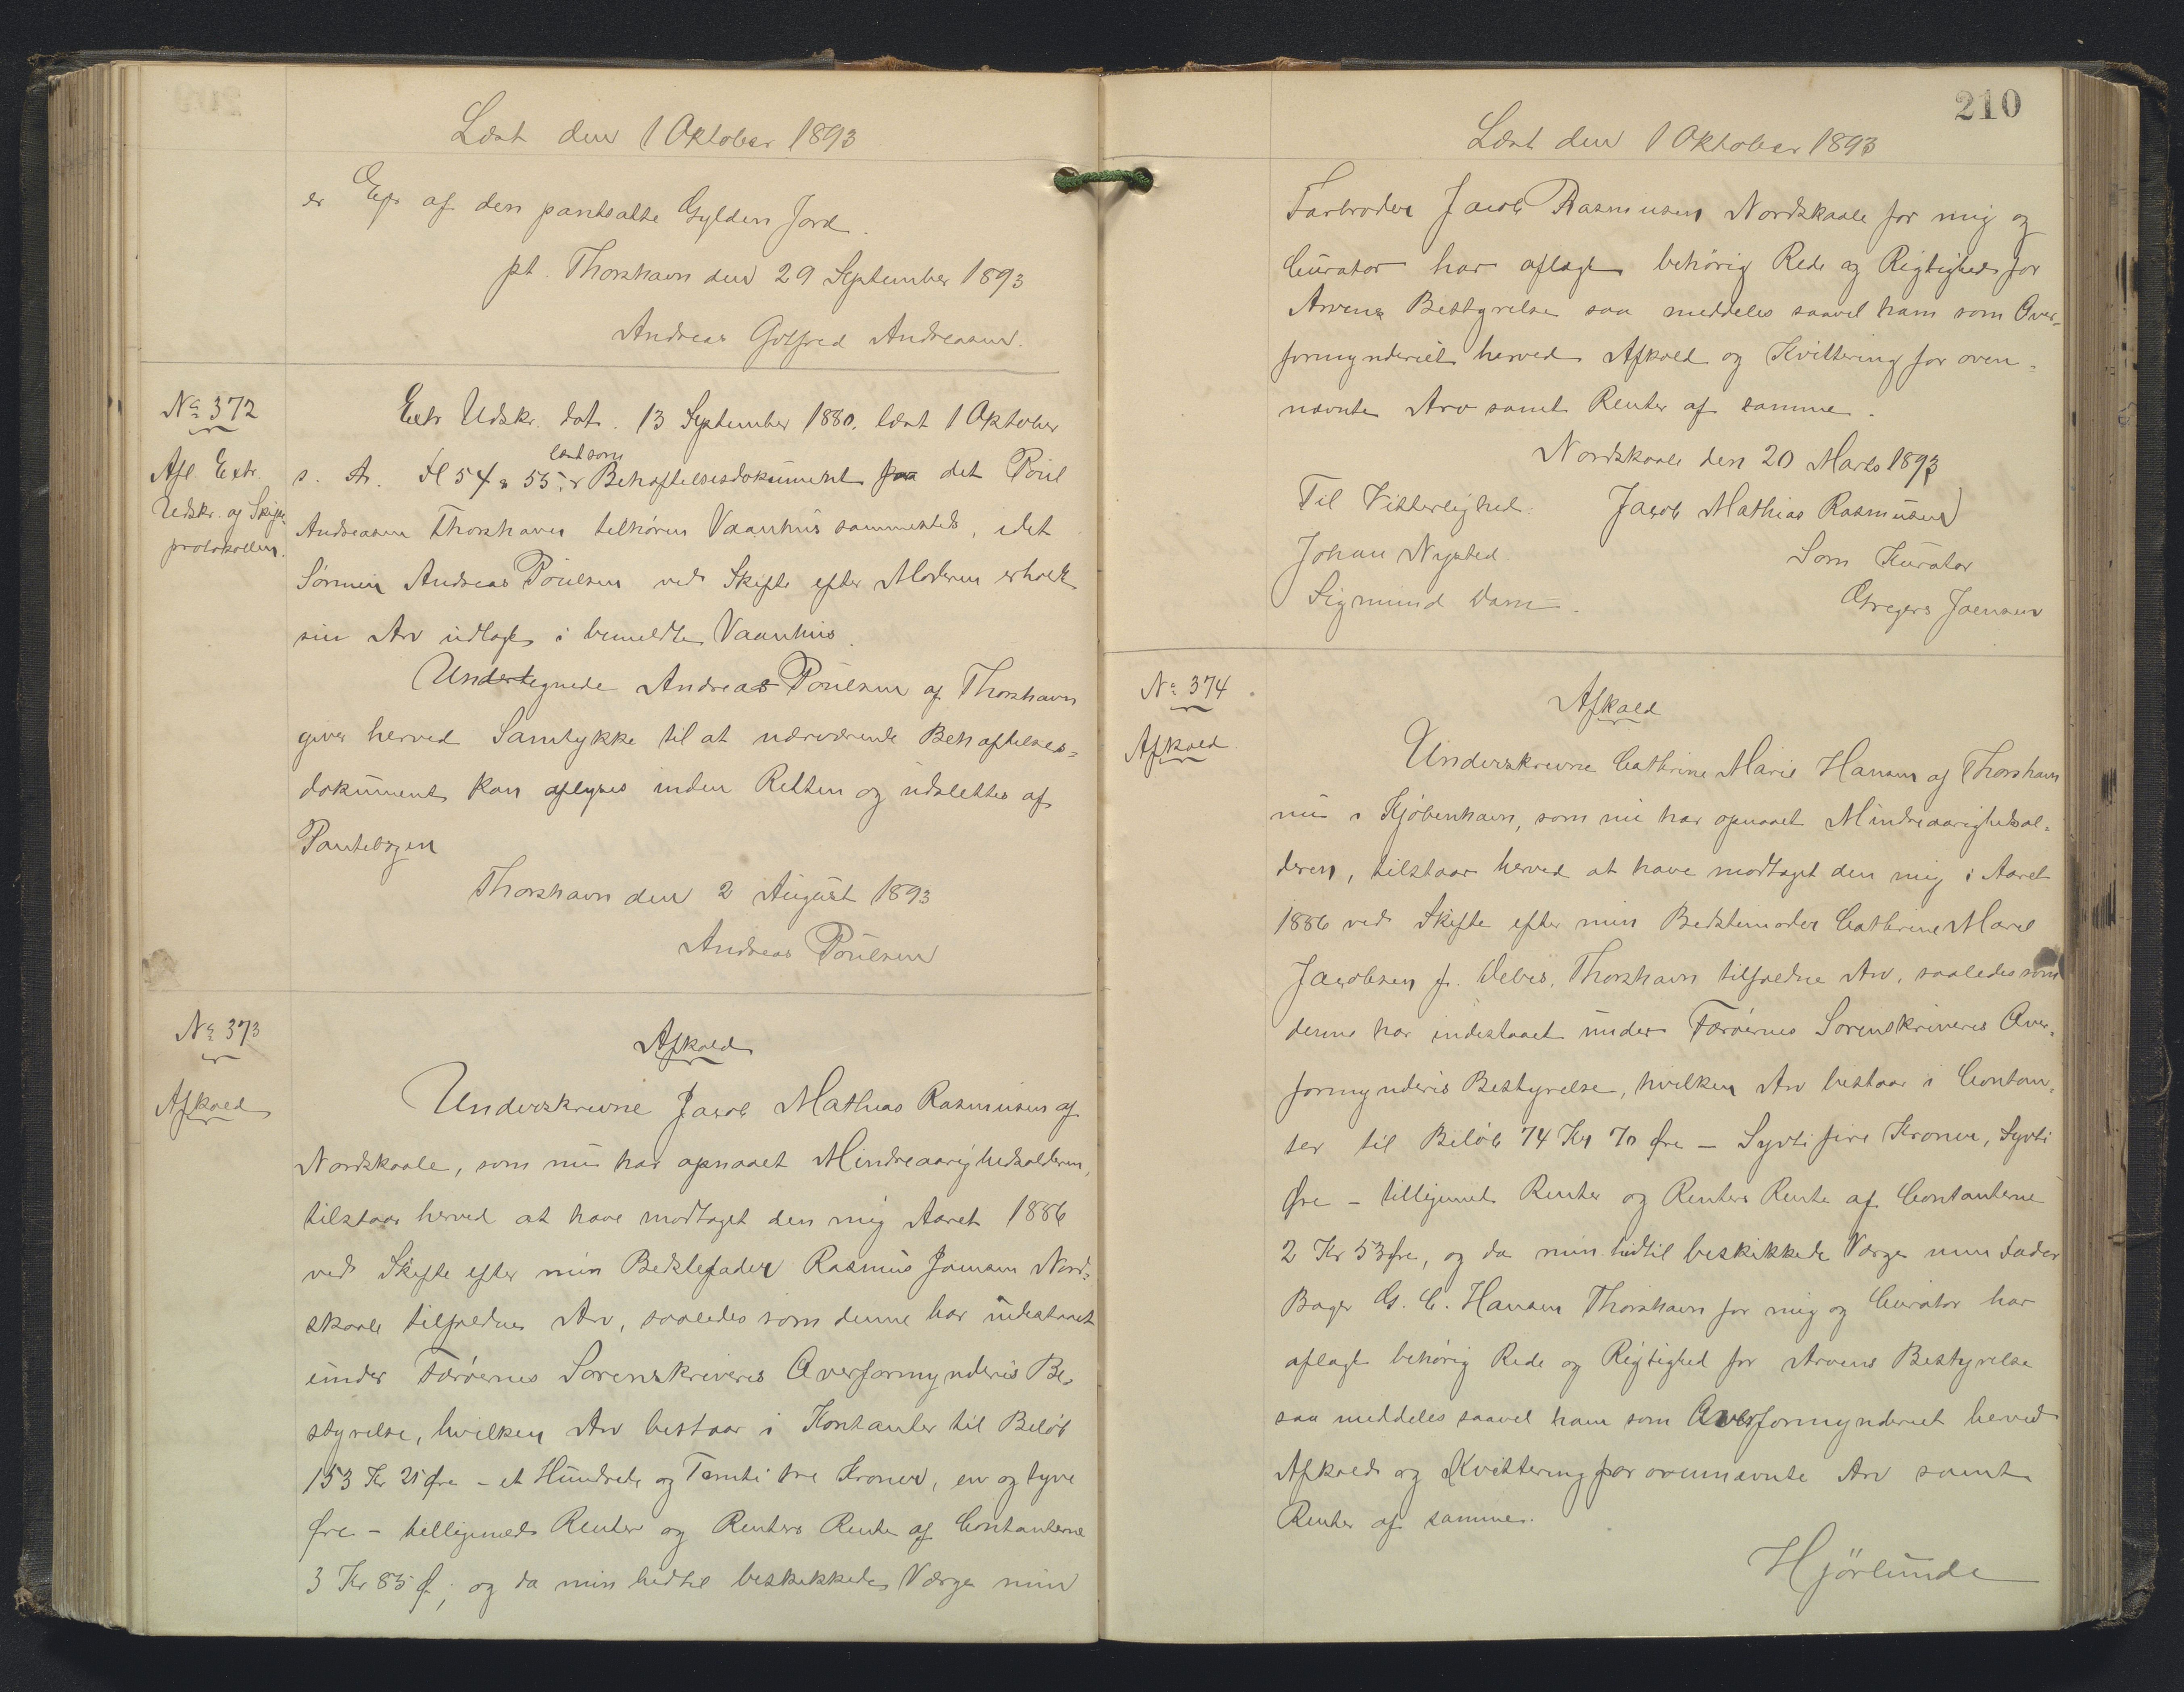 Læst den 1 Oktober 1893
er Ejer af den pantsatte Gylden Jord.
pt. Thorshavn den 29 September 1893
Andreas Gotfred Andreasen.
No 372
Afl. Extr.
Udskr. af Skifte
protokollen.
Extr Udskr. dat. 13 September 1880. læst 1 Oktober
læst som
s. A. Fl 54 & 55, Behæftelsesdokument paa det Poul
Andreasen Thorshavn tilhøren Vaanhus sammesteds, idet
Sønnen Andreas Poulsen ved Skifte efter Moderen erholdt
sin Arv udlagt i bemeldte Vaanhus.
Undertegnede Andreas Poulsen af Thorshavn
giver herved Samtykke til at nærværende Behæftelses-
dokument kan aflyses inden Retten og udslettes af
Pantebogen
Thorshavn den 2 August 1893
Andreas Poulsen
No 373
Afkald
Afkald
Underskrevne Jacob Mathias Rasmusen af
Nordskaale, som nu har opnaaet Mindreaarighedsalderen,
tilstaar herved at have modtaget den mig Aaret 1886
ved Skifte efter min Bedstefader Rasmus Joensen Nord-
skaale tilfaldne Arv, saaledes som denne har indestaaet
under Færøernes Sorenskriveres Overformynderis Be-
styrelse, hvilken Arv bestaar i Kontanter til Beløb
153 Kr 21 Øre - et Hundrede og Femti tre Kroner, en og tyve
Øre - tilligemed Renter og Renters Rente af Contanterne
3 Kr 85 Ø; og da min hidtil beskikkede Værge min
210
Læst den 1 Oktober 1893
Farbroder Jacob Rasmusen Nordskaale for mig og
Curator har aflagt behörig Rede og Rigtighed for
Arvens Bestyrelse saa meddeles saavel ham som Over-
formynderiet herved Afkald og Kvittering for oven-
nævnte Arv samt Renter af samme.
Nordskaale den 20 Marts 1893
Til Vitterlighed. Jacob Mathias Rasmusen
Johan Nysted. Som Kurator
Sigmund Dam. Gregers Joensen
No 374.
Afkald.
Afkald
Underskrevne Cathrine Marie Hansen af Thorshavn
nu i Kjöbenhavn, som nu har opnaaet Mindreaarighedsal-
deren, tilstaar herved at have modtaget den mig i Aaret
1886 ved Skifte efter min Bedstemoder Cathrine Marie
Jacobsen f. Debes, Thorshavn tilfaldne Arv, saaledes som
denne har indestaaet under Færöernes Sorenskriveres Over-
formynderis Bestyrelse, hvilken Arv bestaar i Contan-
ter til Beløb 74 Kr 70 Øre - Syvti fire Kroner, Syvti
Øre - tilligemed Renter og Renters Rente af Contanterne
2 Kr 53 Øre, og da min hidtil beskikkede Værge min Fader
Bager G. C. Hansen Thorshavn for mig og Curator har
aflagt behörig Rede og Rigtighed for Arvens Bestyrelse
saa meddeles saavel ham som Overformynderiet herved
Afkald og Kvittering for ovennævnte Arv samt
Renter af samme.
Hjörlunde